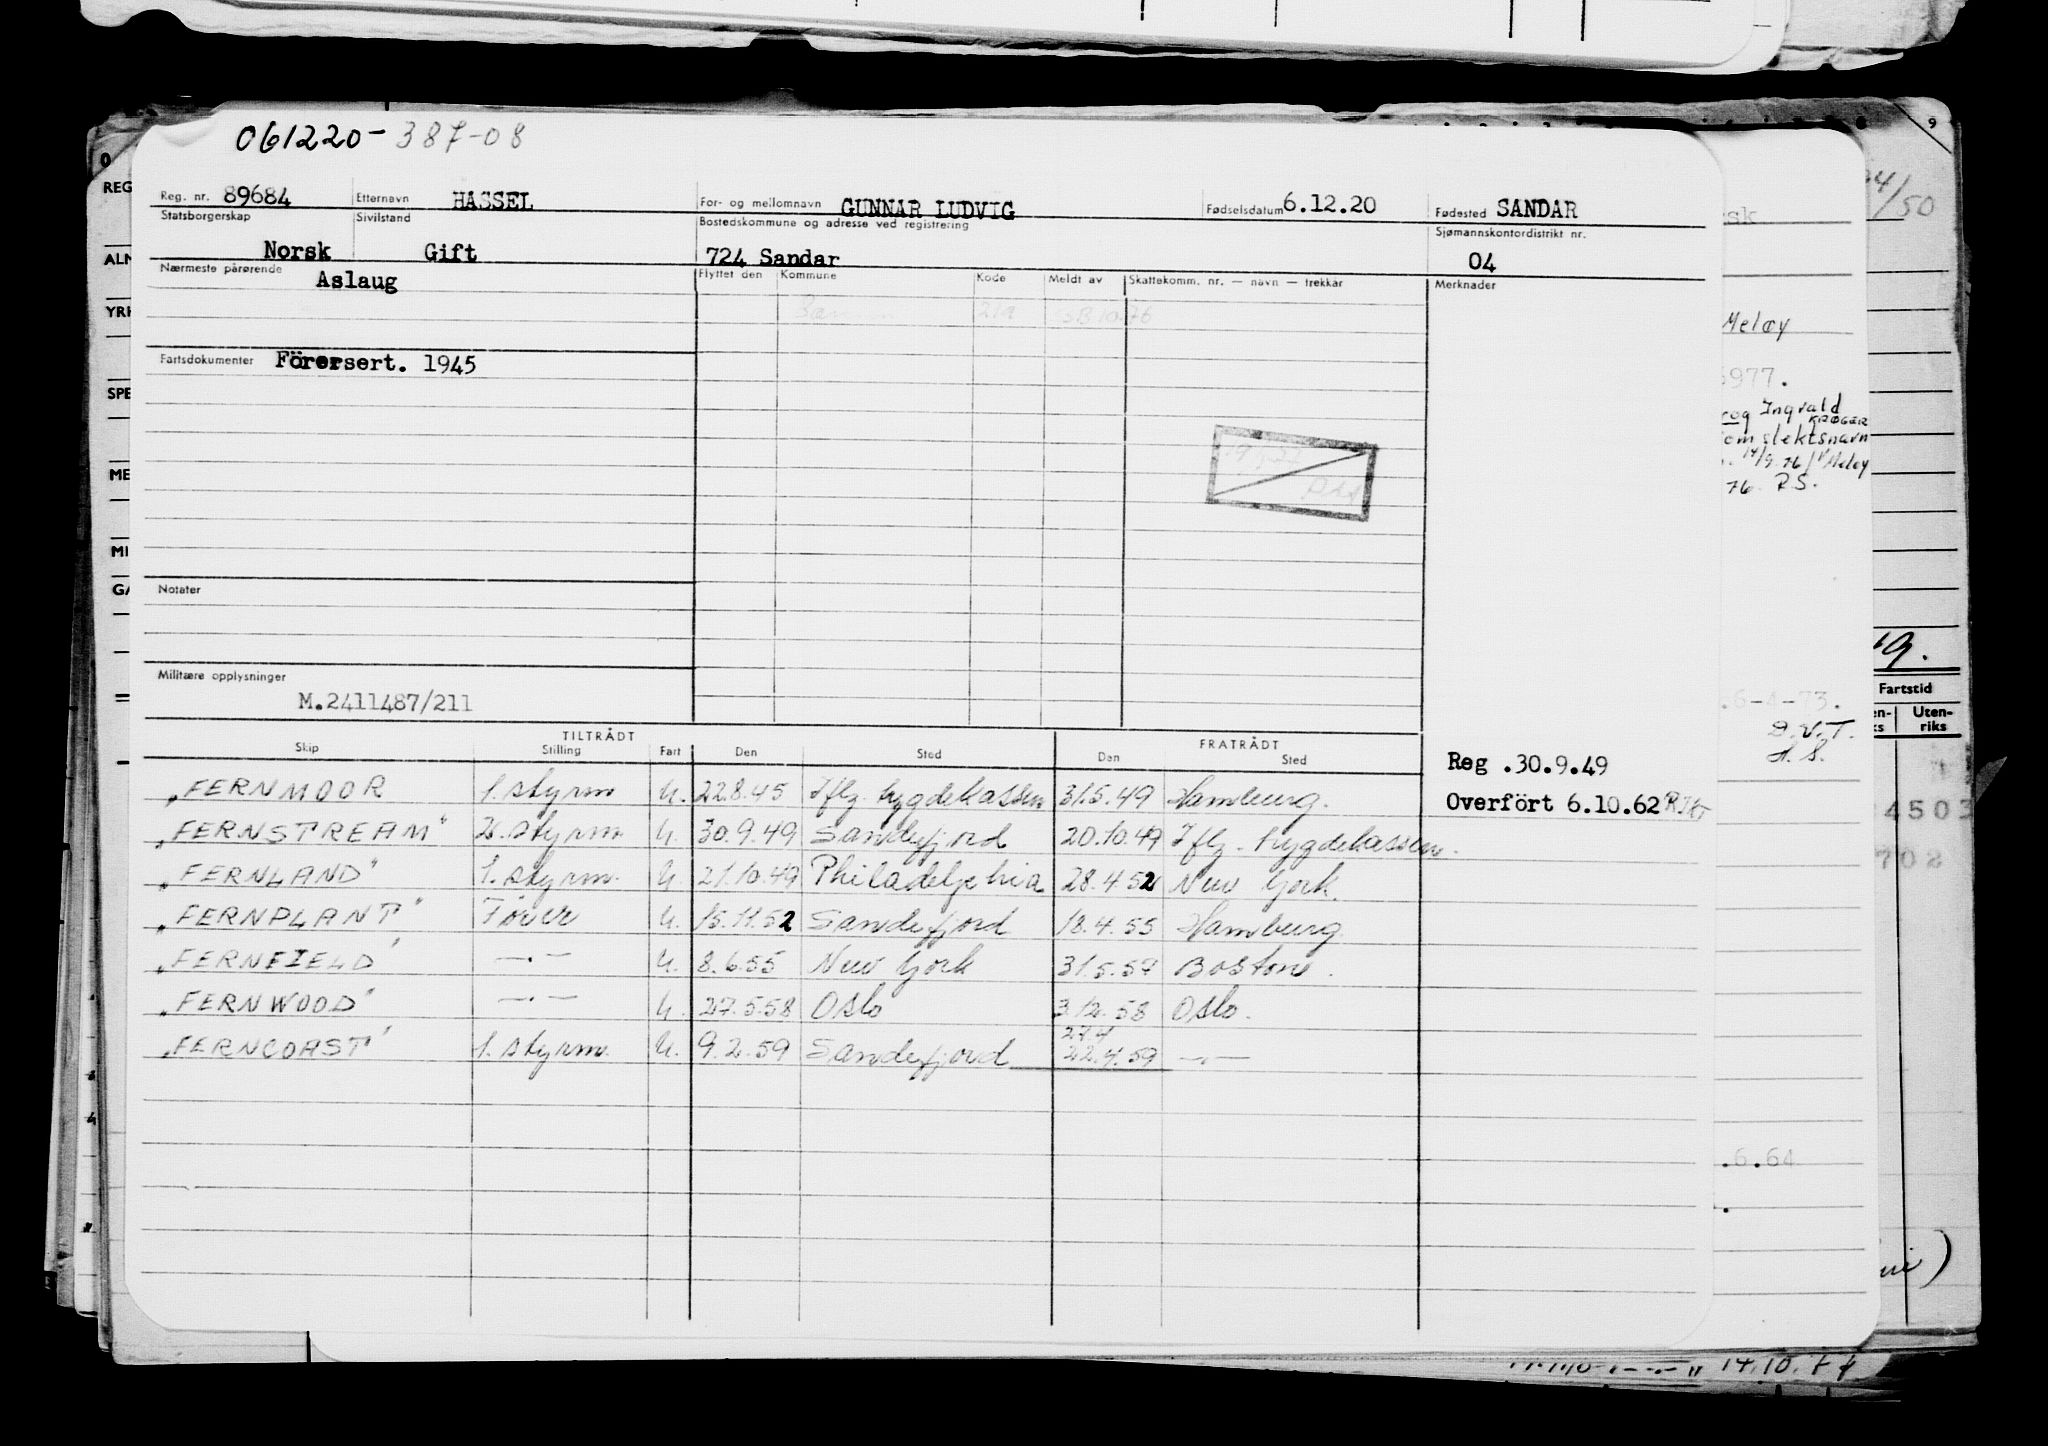 061220-387-08
Reg. nr. 89684 Etternavn HASSEL For- og mellomnavn GUNNAR LUDVIG Fødselsdatum 6.12.20 Fødested SANDAR
Statsborgerskap Sivilstand Bostedskommune og adresse ved registrering Sjømannskontordistrikt nr.
Norsk Gift 724 Sandar 04
Nærmeste pårørende Aslaug Flyttet den Kommune Kode Meldt av Skattekomm. nr. — navn — trekkår Merknader
Fartsdokumenter Förersert. 1945
Notater
Militære opplysninger
M.2411487/211
TILTRÅDT FRATRÅDT
Skip Stilling Fart Den Sted Den Sted
"FERNMOOR 1. styrm U. 22.8.45 Iflg. trygdekassen 31.5.49 Hamburg.
"FERNSTREAM" 2. styrm U. 30.9.49 Sandefjord 20.10.49 Iflg. trygdekassen.
"FERNLAND" 1. styrm. U. 21.10.49 Philadelphia 28.4.52 New York.
"FERNPLANT" Fører U. 15.11.52 Sandefjord 18.4.55 Hamburg
"FERNFIELD" —.— U. 8.6.55 New York 31.5.57 Boston.
"FERNWOOD" —.— U. 27.5.58 Oslo 3.12.58 Oslo.
27.4
"FERNCOAST" 1. styrm. U. 9.2.59 Sandefjord 22.4.59 —.—
Reg .30.9.49
Overfört 6.10.62
Meløy
977.
og Ingvald
KRØGER
om slektsnavn
14/9.76/ Meløy
76. R.S.
6-4-73.
D.V.T.
.6.64
/50
REG
ALM
YRK
SPE
ME
MI
GA
9.
Fartstid
Uten-
riks
4503
702
14.10.74